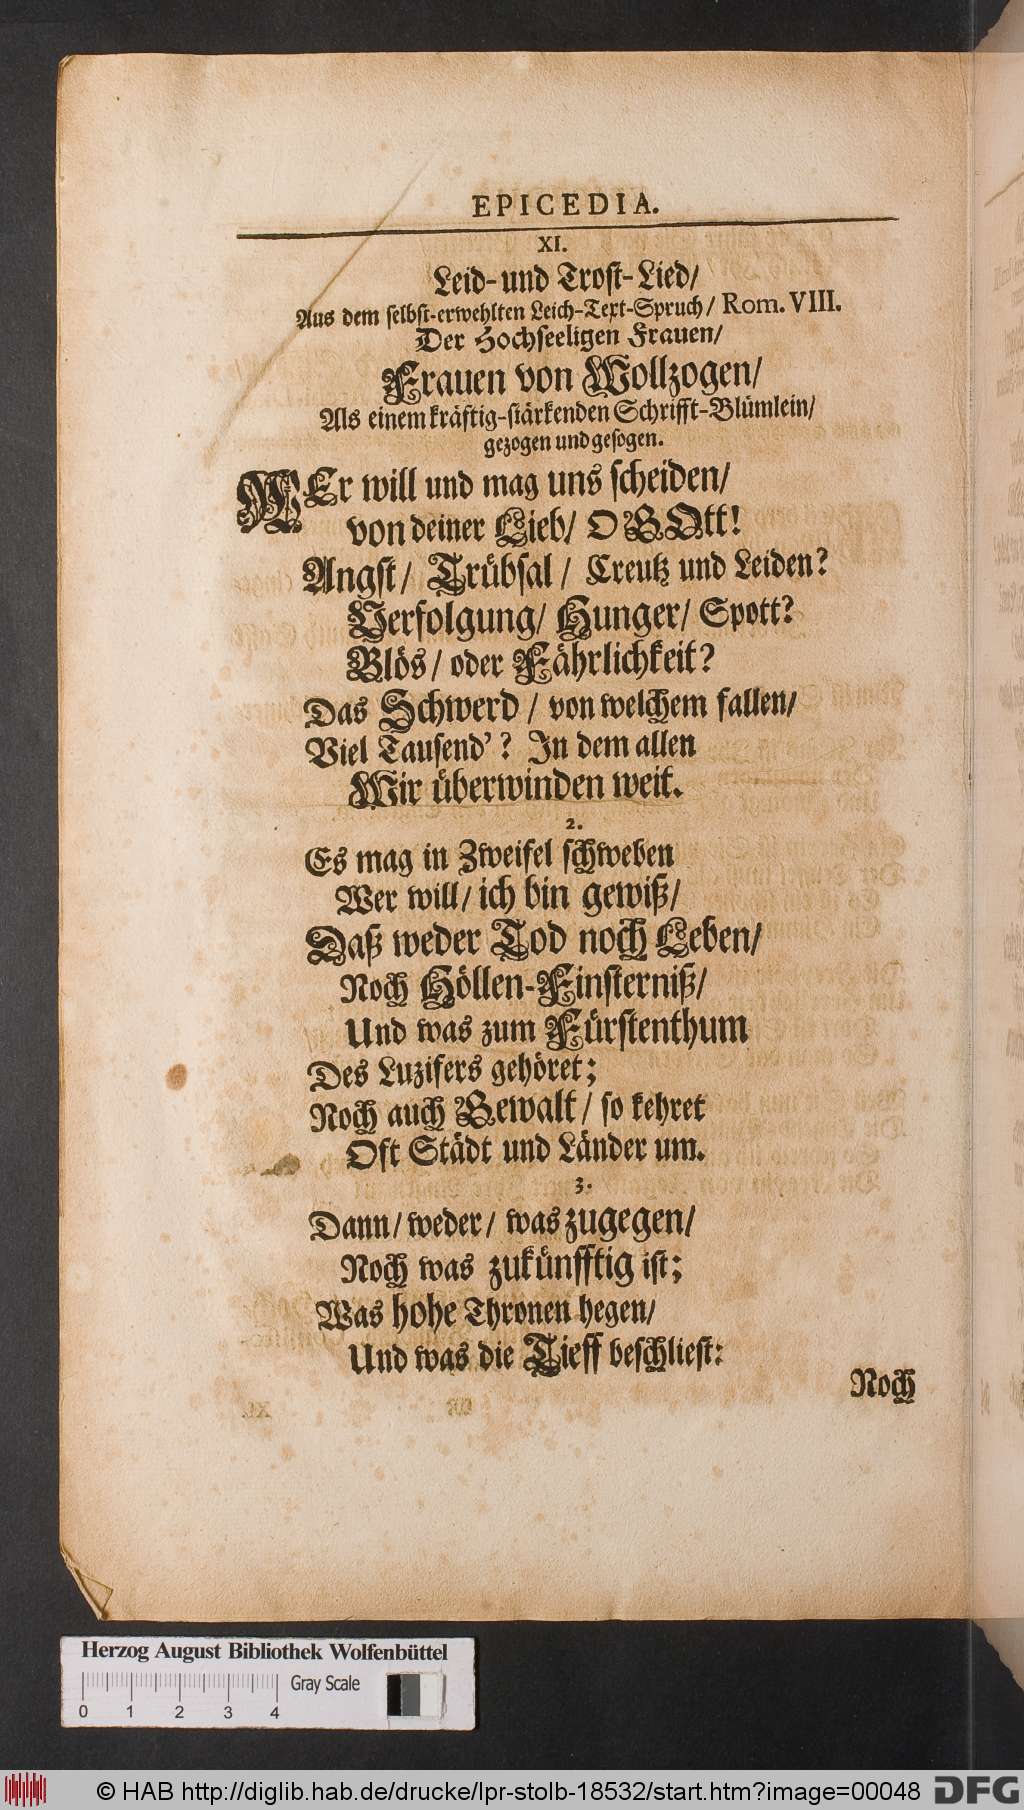 EPICEDIA.
XI.
Leid- und Trost-Lied/
Aus dem selbst-erwehlten Leich-Text-Spruch/ Rom. VIII.
Der Hochseeligen Frauen/
Frauen von Wollzogen/
Als einem kräftig-stärkenden Schrifft-Blümlein/
gezogen und gesogen.
WEr will und mag uns scheiden/
von deiner Lieb/ O GOtt!
Angst/ Trübsal/ Creutz und Leiden?
Verfolgung/ Hunger/ Spott?
Blös/ oder Fährlichkeit?
Das Schwerd/ von welchem fallen/
Viel Tausend'? In dem allen
Wir überwinden weit.
2.
Es mag in Zweifel schweben
Wer will/ ich bin gewiß/
Daß weder Tod noch Leben/
Noch Höllen-Finsterniß/
Und was zum Fürstenthum
Des Luzifers gehöret;
Noch auch Gewalt/ so kehret
Oft Städt und Länder um.
3.
Dann/ weder/ was zugegen/
Noch was zukünfftig ist;
Was hohe Thronen hegen/
Und was die Tieff beschliest:
Noch
Herzog August Bibliothek Wolfenbüttel
Gray Scale
0 1 2 3 4
© HAB http://diglib.hab.de/drucke/lpr-stolb-18532/start.htm?image=00048
DFG